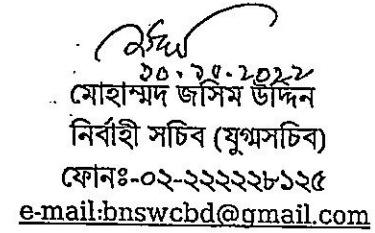 ১০.১০.2022
মোহাম্মদ জসিম উদ্দিন
নির্বাহী সচিব (যুগ্মসচিব)
ফোনঃ-০২-২২২২২৮১২৫
e-mail:bnswcbd@gmail.com